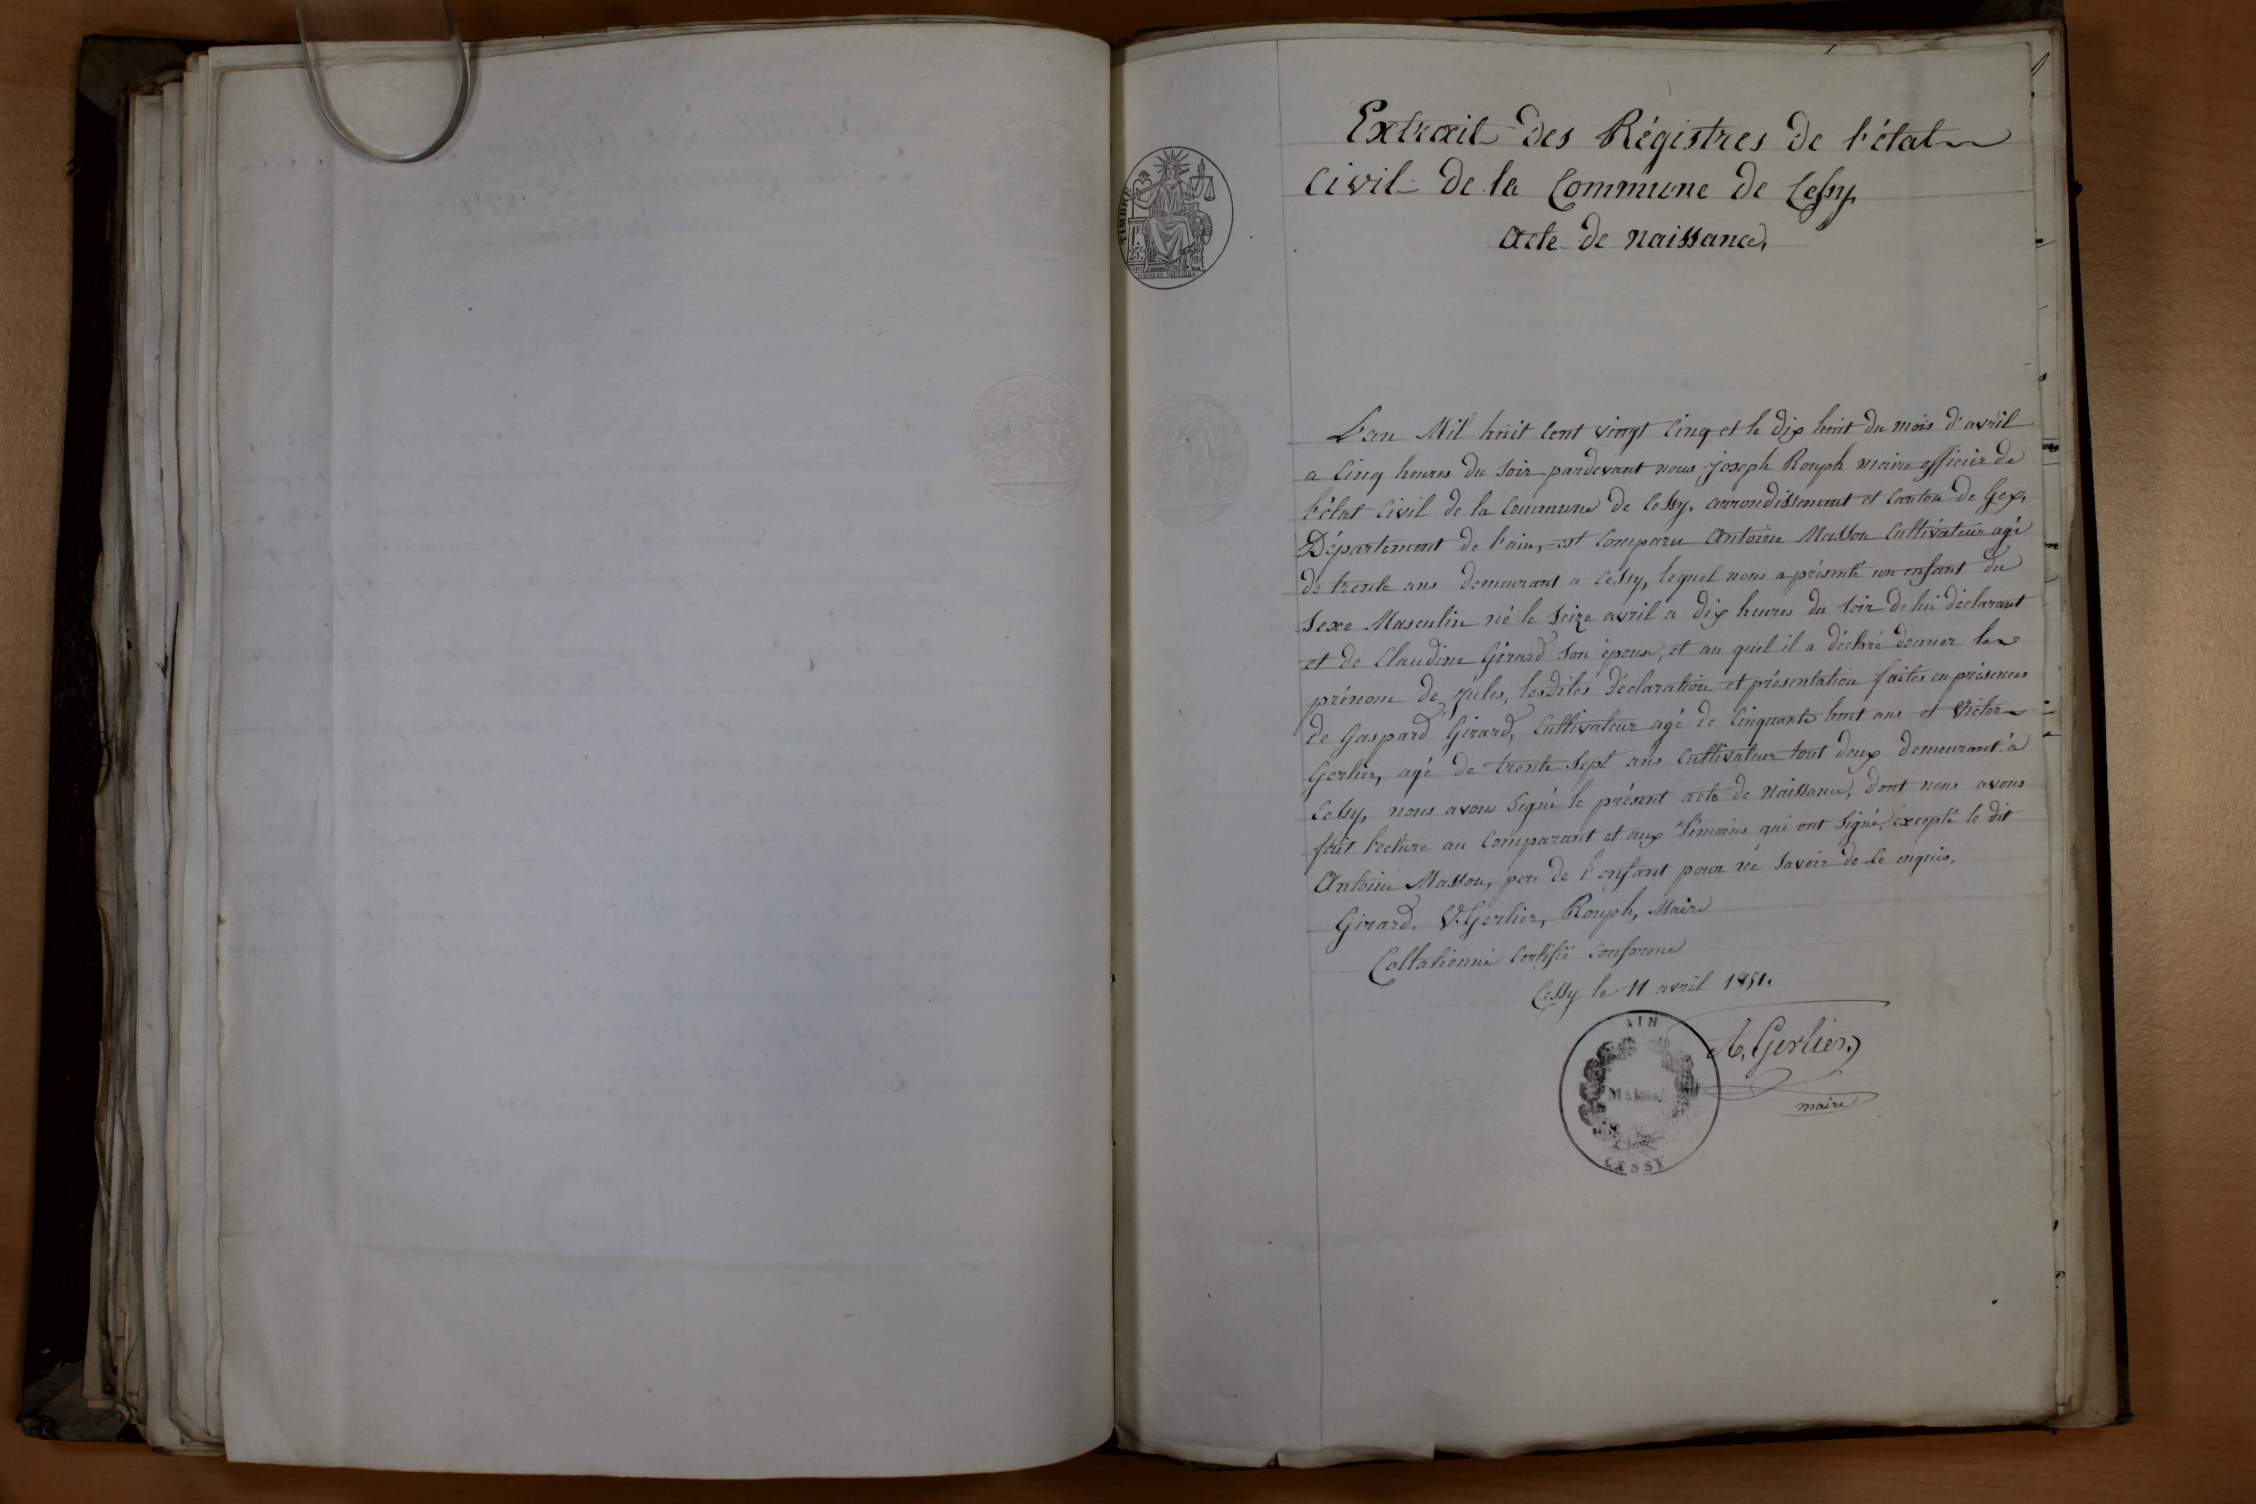 Extrait des Régistres de l'état
Civil de la Commune de Cessy
Acte de Naissance,
TIMBRE
1F
25c
L'an Mil huit cent vingt cinq et le dix huit du mois d'avril
a cinq heures du soir pardevant nous joseph Rouph maire officier de
l'état civil de la Commune de Cessy, arrondissement et canton de Gex,
Département de l'ain, est comparu Antoine Masson Cultivateur agé
de trente ans demeurant a Cessy, lequel nous a présenté un enfant du
Sexe Masculin né le Seize avril a dix heures du soir de lui déclarant
et de Claudine Girard son épouse, et au quel il a déclaré donner le
prénom de Jules, lesdites déclaration et présentation faites en présence
de Gaspard Girard, Cultivateur agé de Cinquante huit ans et Victor
Gerlier, agé de trente sept ans Cultivateur tout deux demeurant à
Cessy, nous avons Signé le présent acte de Naissance, dont nous avons
fait lecture au Comparant et aux témoins qui ont Signé, excepté le dit
Antoine Masson, pere de l'enfant pour ne savoir de ce enquis.
Girard. V. Gerlier, Rouph, Maire
Collationné Certifié Conforme
Cessy le 11 avril 1851.
A. Gerlier
maire
AIN
MAIRIE
CESSY